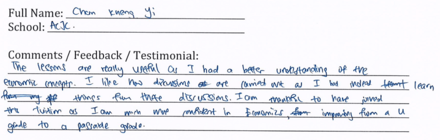 Full Name: Chan Kheng Yi
School: ACJC.
Comments / Feedback / Testimonial:
The lessons are really useful as I had a better understanding of the
economic concepts. I like how discussions are carried out as I but indeed learn
things from these discussions. I am thankful to have joined
the tuition as I am more confident in Economics improving from a U
grade to a passable grade.